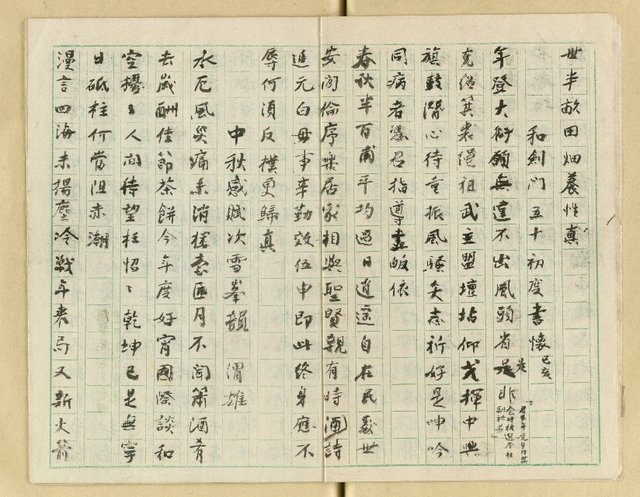 世半畝田畑養性真
和劍門五十初度書懷 己亥
年登大衍願無違不出風頭省是非
克紹箕裘繩祖武主盟壇坫仰戈揮中興
旗鼓潛心待重振風騷矢志祈好是呻吟
同病者盼君指導盡皈依
春秋半百甫平均過日逍遙自在民羲世
安閒倫序樂居家相與聖賢親有時酒詩
追元白毋事辛勤效伍申即此終身應不
辱何須反樸更歸真
中秋感賦次雪峯韻 渭雄
水厄風災痛未消穆素匝月不聞簫酒肴
去歲酬佳節茶餅今年度好宵國際談和
空擾擾人間待望枉怊怊乾坤已是無寧
日砥柱何當阻赤潮
漫言四海未揚塵冷戰年來局又新火箭